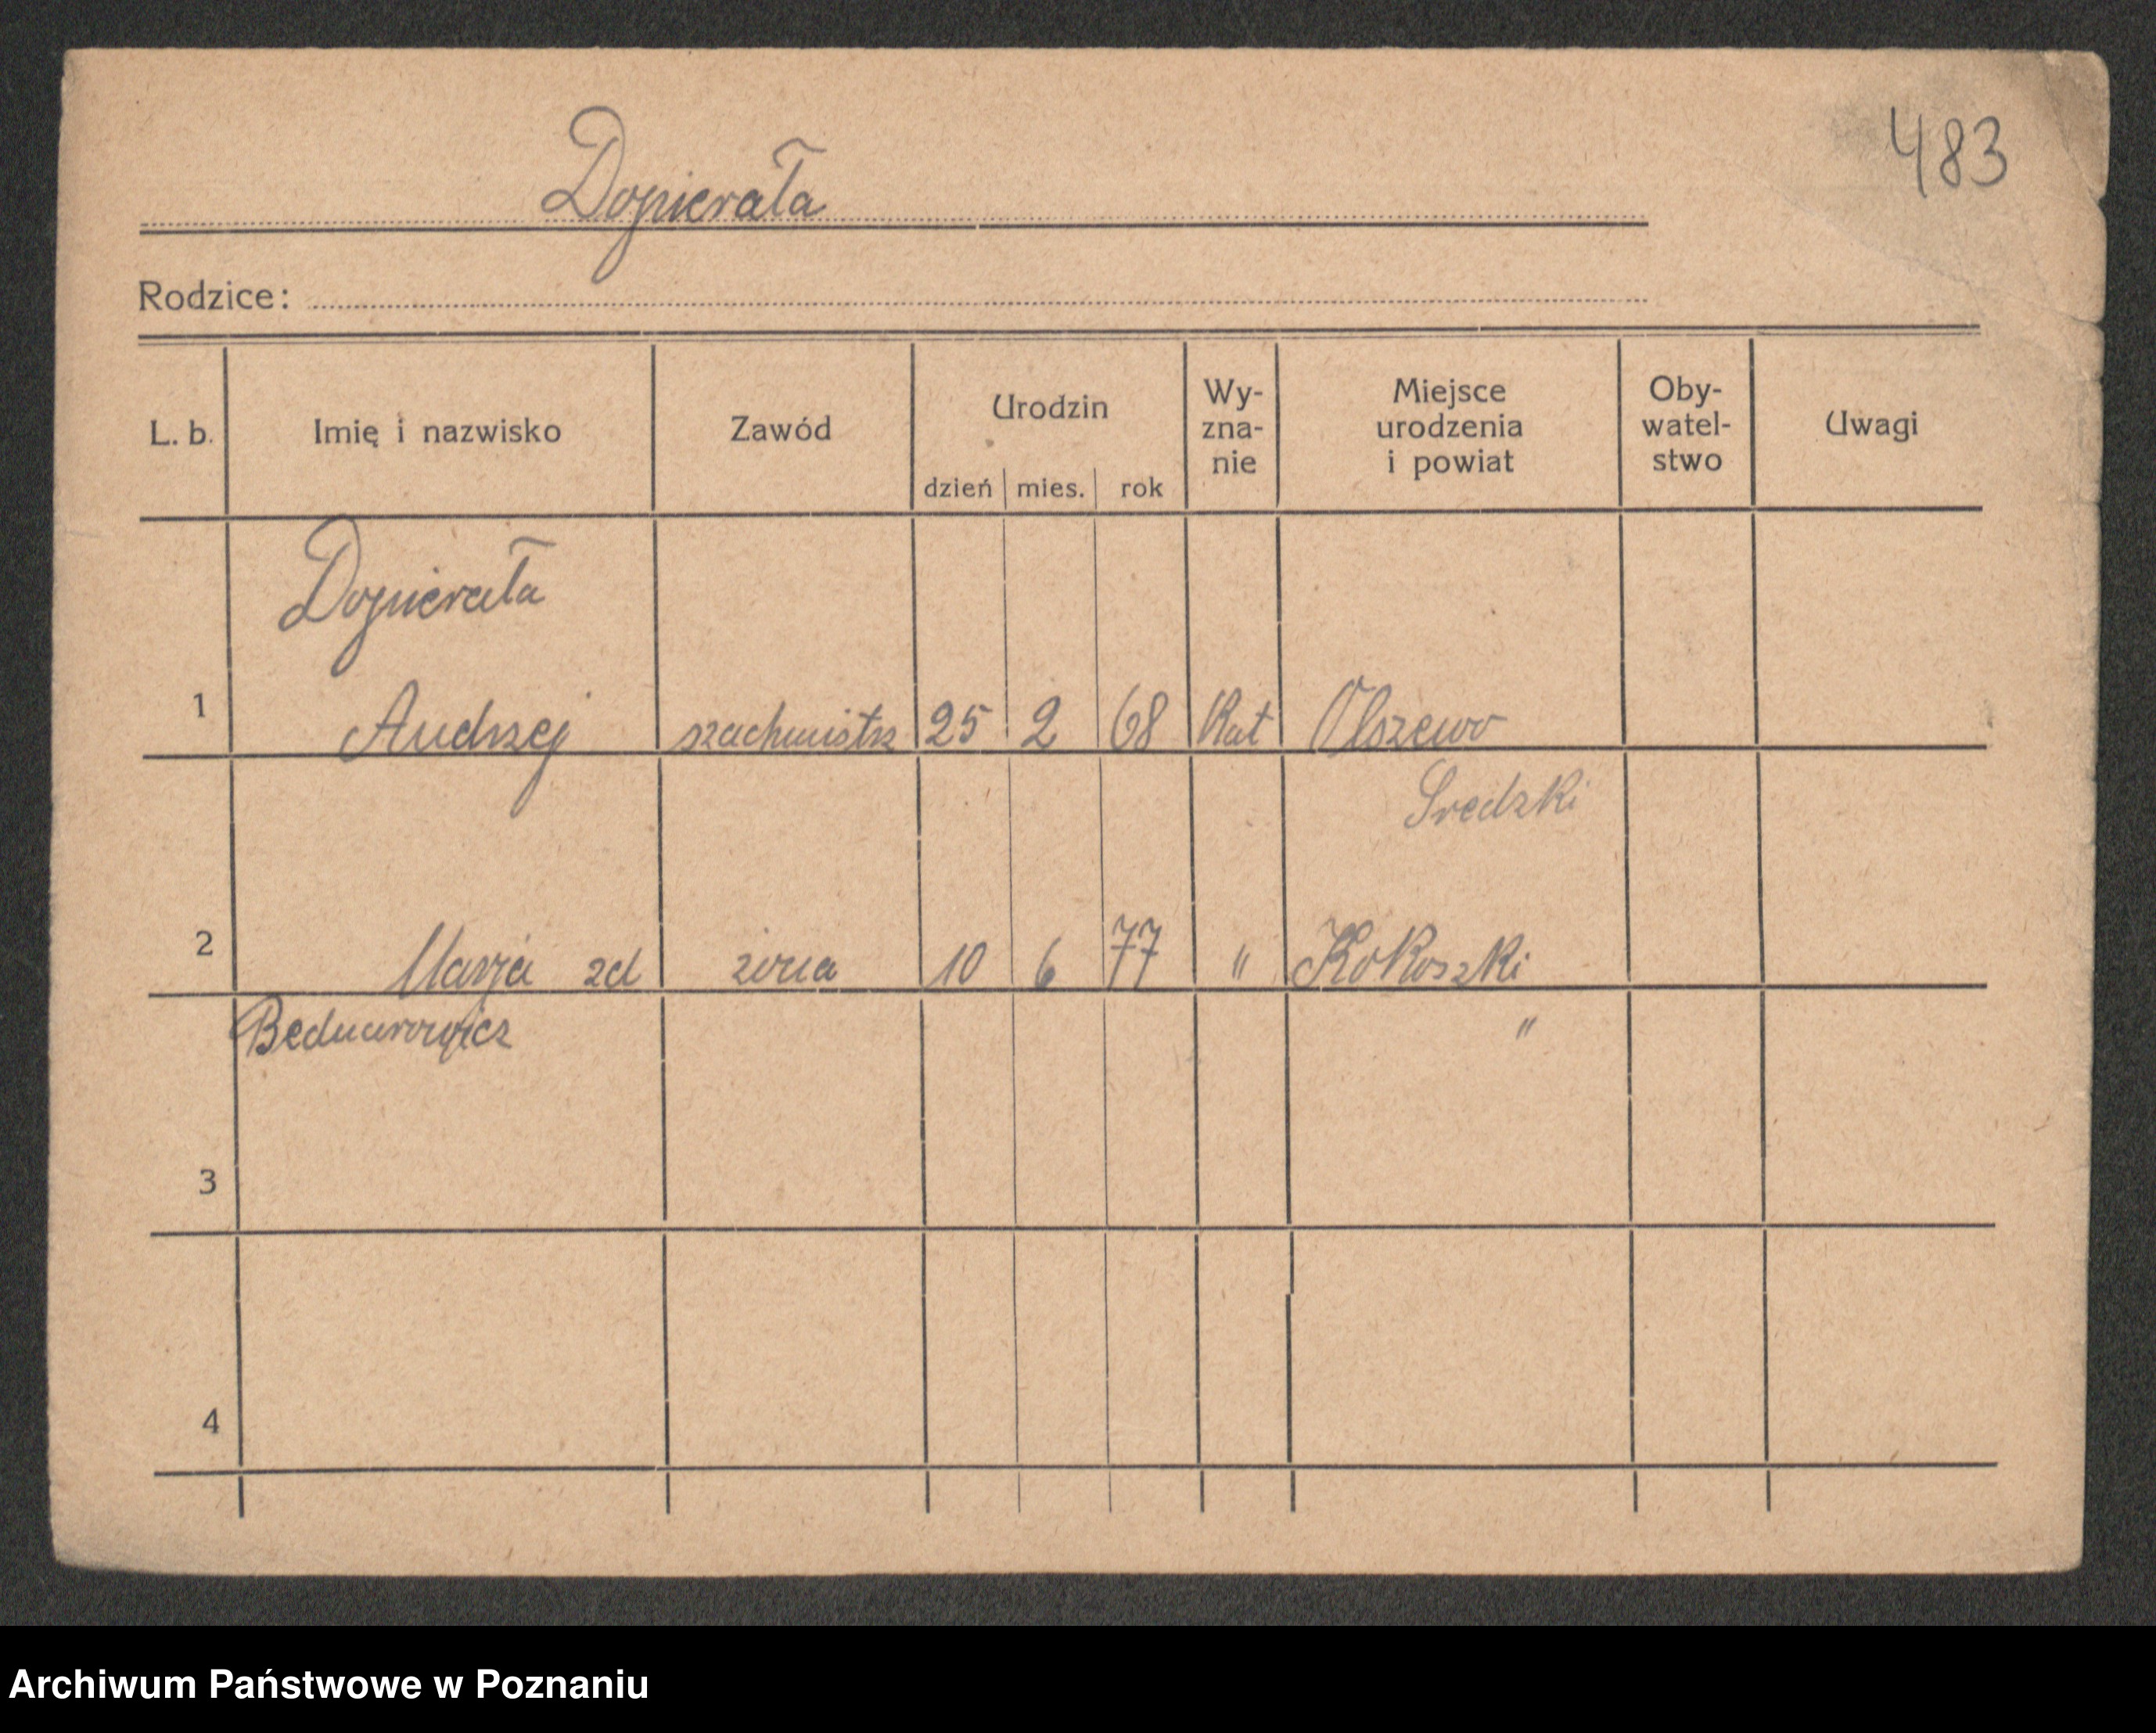 483
Dopierała
Rodzice:
L. b. Imię i nazwisko Zawód Urodzin dzień mies. rok Wy-zna-nie Miejsce urodzenia i powiat Oby-watel-stwo Uwagi
Dopierała
1 Andrzej szachmistrz 25 2 68 Kat Olszewo
Sredzki
2 Marja zd żona 10 6 77 " Kokoszki
Bednarowicz "
3
4
Archiwum Państwowe w Poznaniu